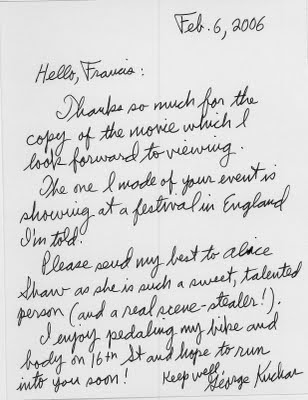 Feb. 6, 2006
Hello, Francis:
Thanks so much for the
copy of the movie which I
look forward to viewing.
The one I made of your event is
showing at a festival in England
I'm told.
Please send my best to Alice
Shaw as she is such a sweet, talented
person (and a real scene-stealer!).
I enjoy pedaling my bike and
body on 16th St and hope to run
into you soon!
Keep well,
George Kuchar